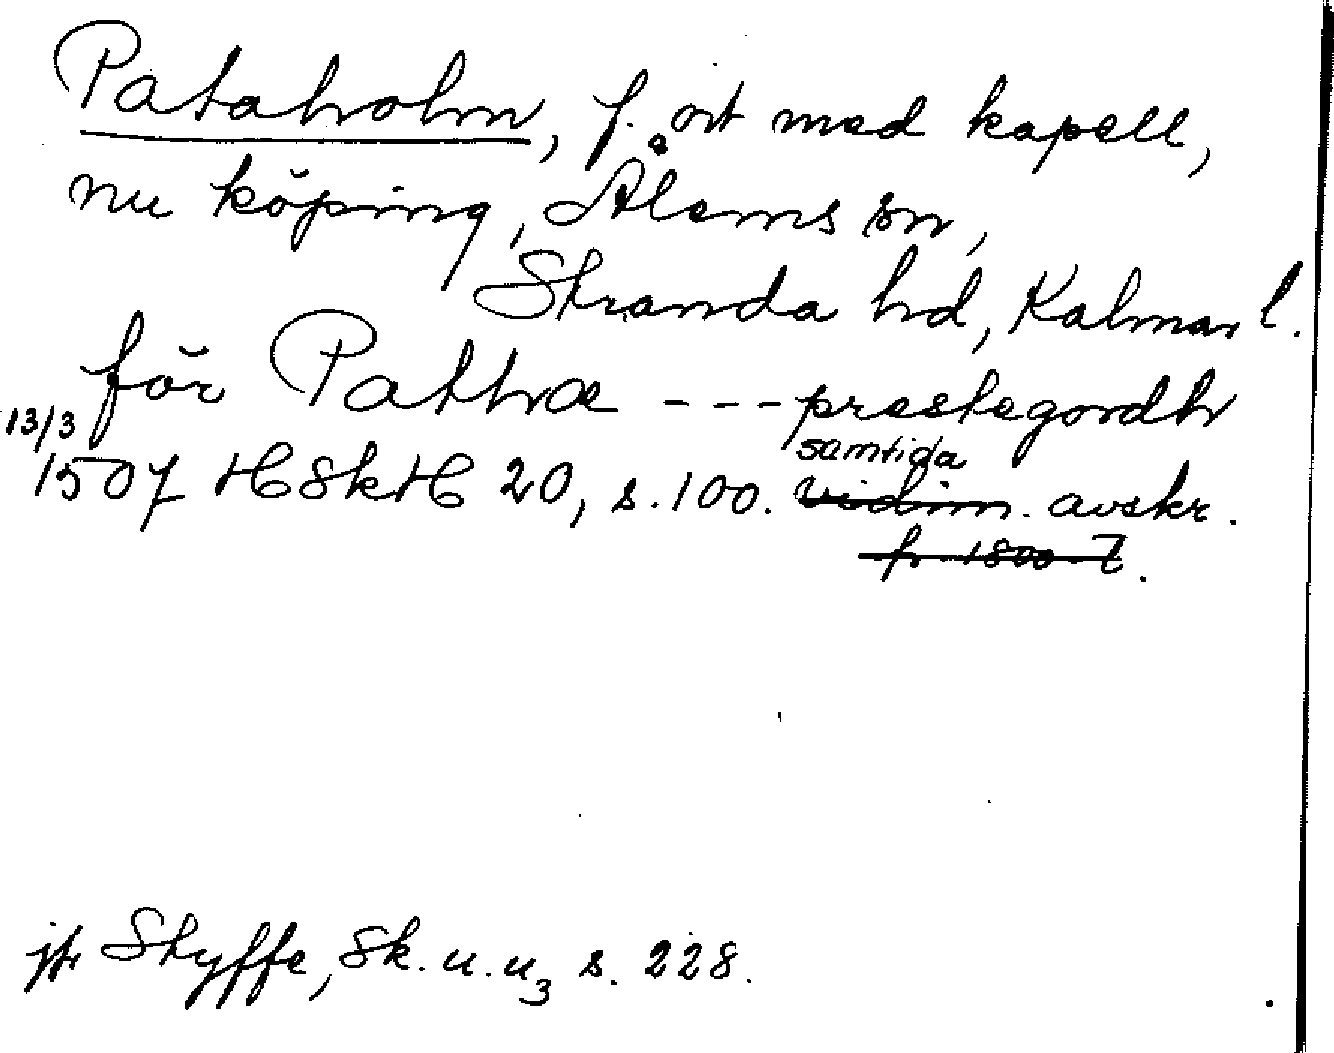 Pataholm, f. ort med kapell,
nu köping, Ålems sn,
Stranda hd, Kalmar l.
för Pathæ --- prestegordh
13/3
samtida
1507 HSkH 20, s. 100. vidim. avskr.
fr. 1800-t.
jfr Styffe, Sk. u. u3 s. 228.